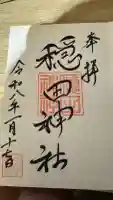 奉拝
穏田神社
令和八年一月十一日